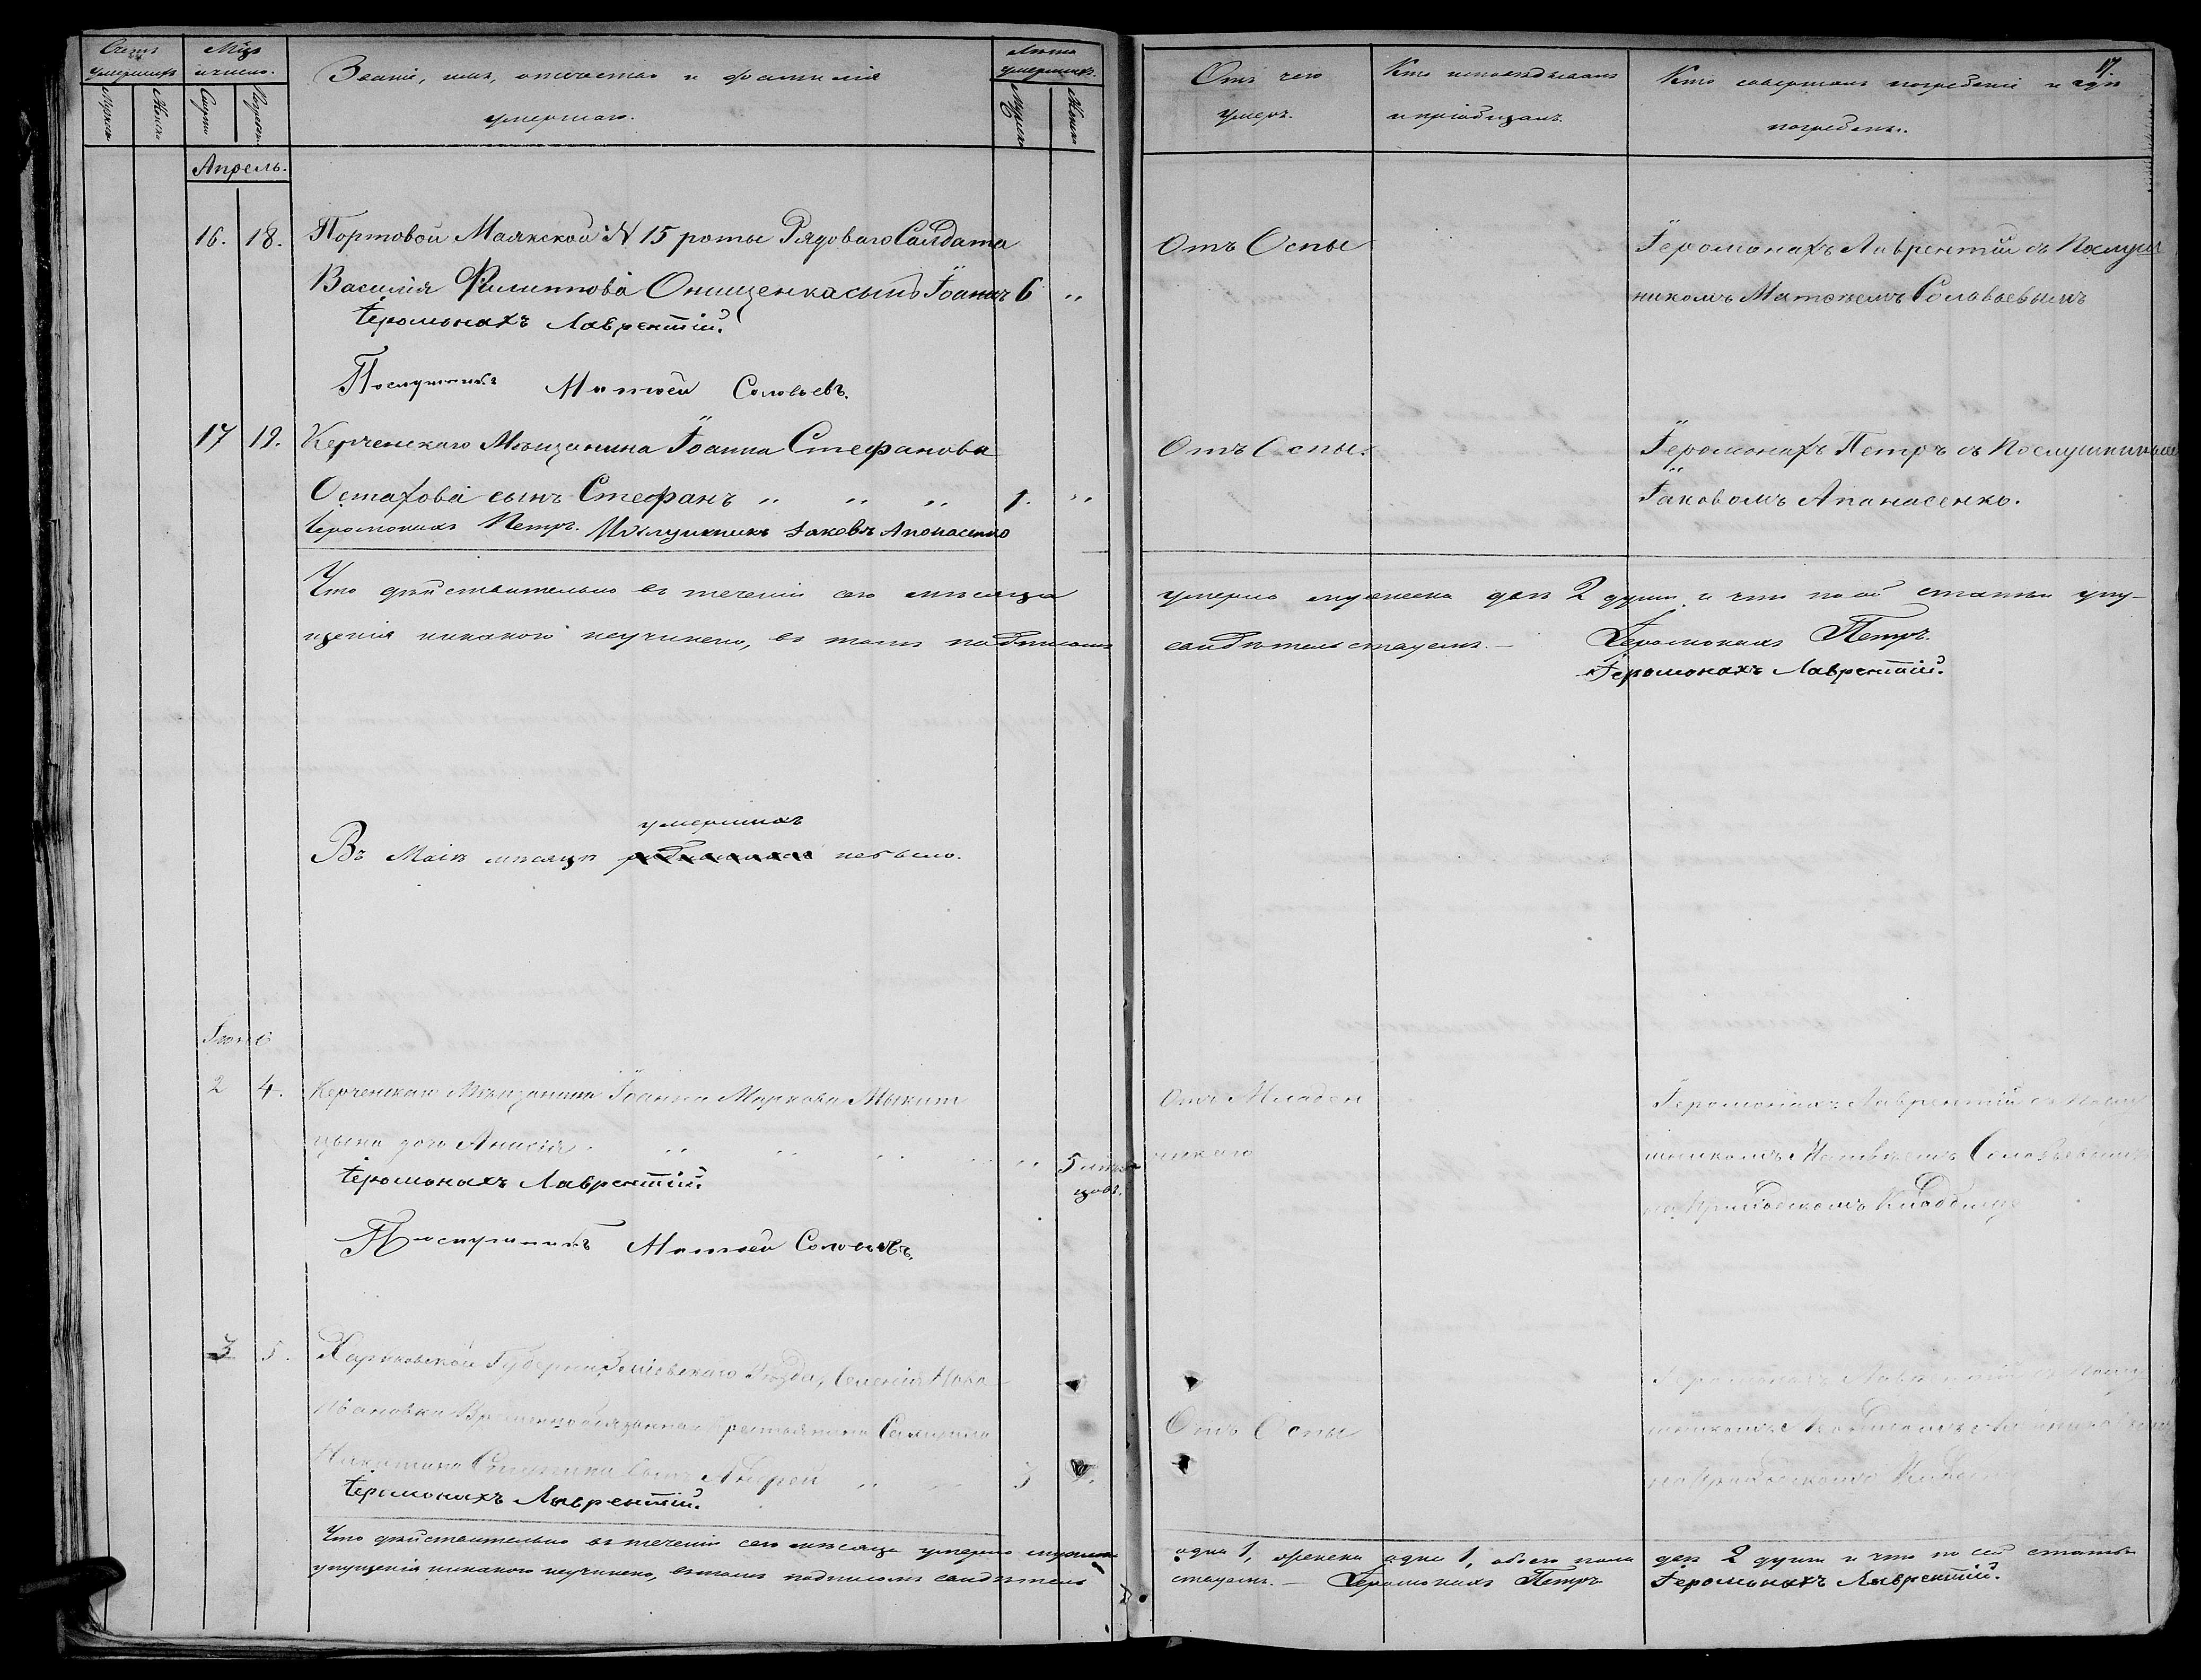 Счетъ умершихъ
Мцъ и число.
Званіе, имя, отчество и фамилія
умершаго.
Лѣта умершихъ.
Мужск.
Женск.
Смерти
Погребен.
Мужеск.
Женска
Отъ чего
умеръ.
Кто исповѣдывалъ
и пріобщалъ.
17
Кто совершалъ погребеніе и гдѣ
погребены.
Апрель.
16. 18. Портовой Маякской N 15 роты Рядоваго Салдата
Василія Филиппова Онищенка сынъ Іоаннъ 6 "
Іеромонахъ Лаврентій.
Послушникъ Матѳей Соловьевъ.
Отъ Оспы
Іеромонахъ Лаврентій съ Послуш
никомъ Матѳѣемъ Соловьевымъ
17 19. Керченскаго Мѣщанина Іоанна Стефанова
Остахова сынъ Стефанъ " " " 1. "
Іеромонахъ Петръ. Послушникъ Іаковъ Апонасенко
Отъ Оспы.
Іеромонахъ Петръ съ Послушникомъ
Іаковомъ Апанасенко.
Что дѣйствительно въ теченіи сего мѣсяца умерло мужеска два 2 души и что по сей статьи упу-
щенія никакого неучинено, въ томъ подписомъ свидѣтельствуемъ.— Іеромонахъ Петръ.
Іеромонахъ Лаврентій.
умершихъ
Въ Маіѣ мѣсяцѣ небыло.
Іюнь
2 4. Керченскаго Мѣщанина Іоанна Маркова
дочь Анисія " " " " " 5 мѣся
цовъ.
Іеромонахъ Лаврентій.
Послушникъ Матѳей Соловьевъ.
Отъ Младен
ческаго
Іеромонахъ Лаврентій съ Послу
шникомъ Матвѣемъ Соловьевымъ
на Кладбище
3 5. Харьковской Губерніи, Зміевскаго Уѣзда, Селенія
Ивановки Временнообязаннаго Крестьянина Самуила
Никитина сынъ Андрей " 3
Іеромонахъ Лаврентій.
Отъ Оспы
Іеромонахъ Лаврентій съ Послу
шникомъ
на
Что дѣйствительно въ теченіи сего мѣсяца умерло мужска одна 1, женска одна 1, обоего пола два 2 души и что по сей статьи
упущенія никакого неучинено, въ томъ подписомъ свидѣтельствуемъ.— Іеромонахъ Петръ Іеромонахъ Лаврентій.